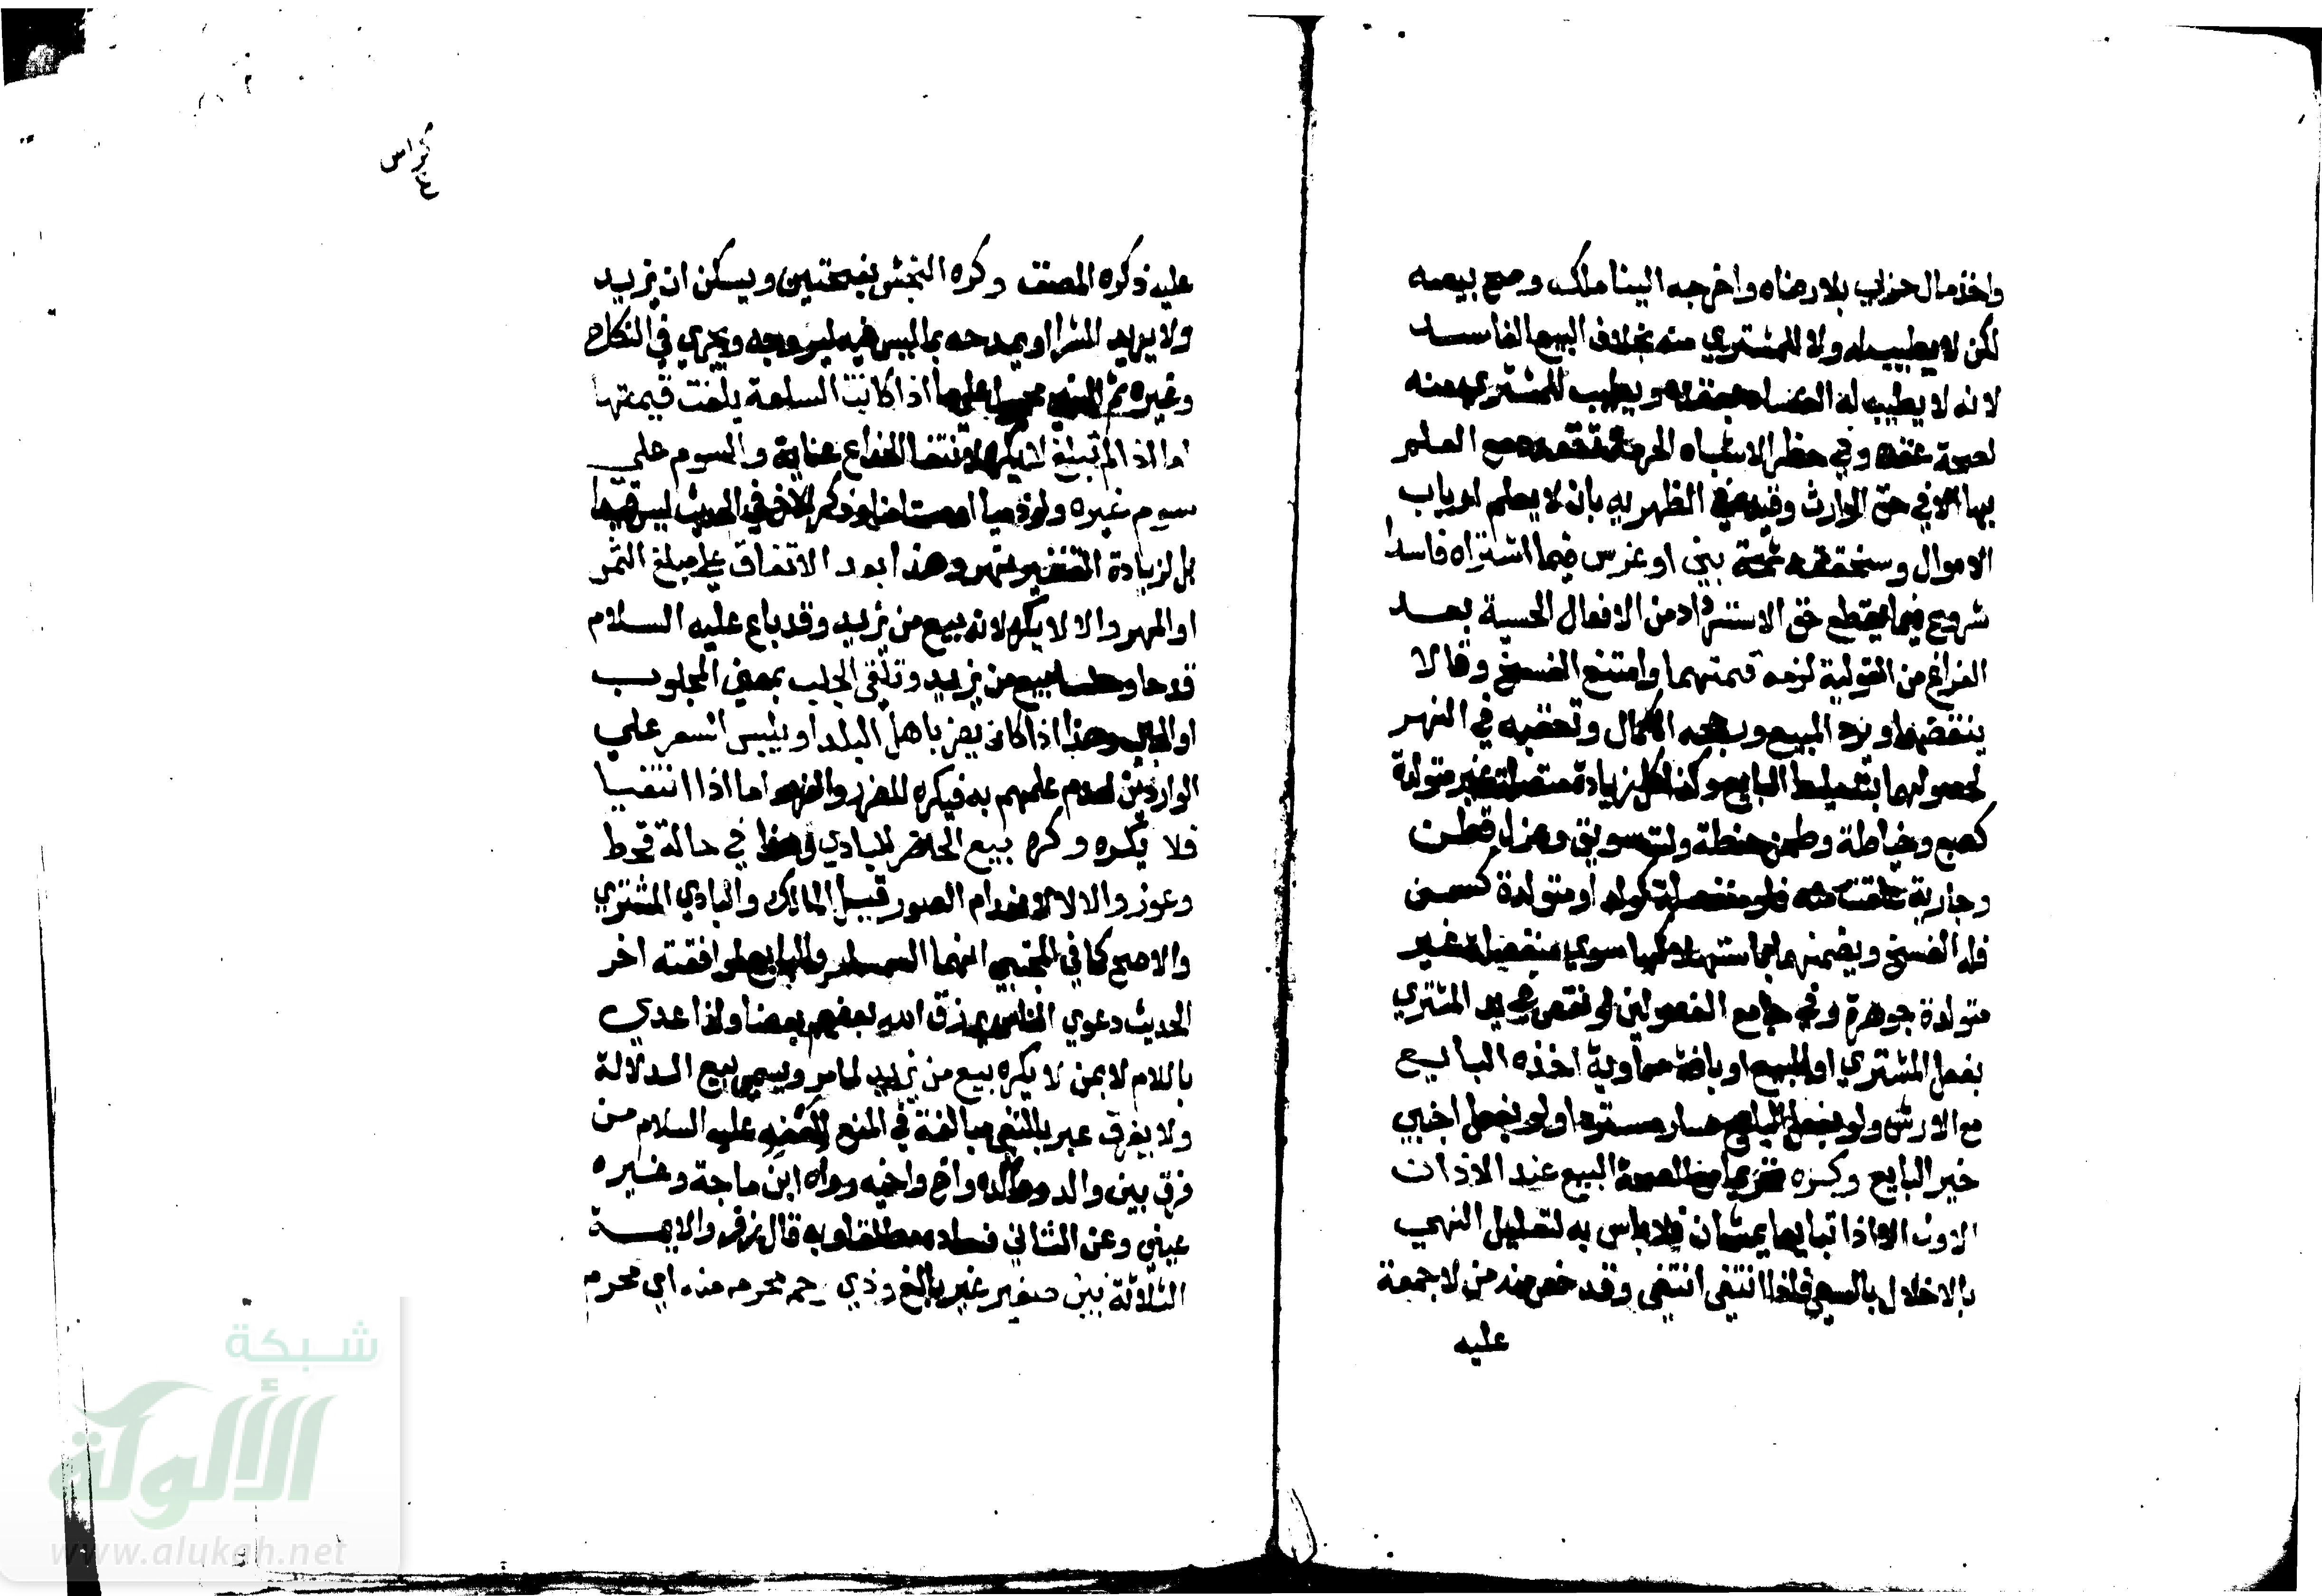 واخذ مال حربي بلا رضاه واخرجه الينا ملكه وصح بيعه
لكن لا يطيب له ولا للمشتري منه بخلاف البيع الفاسد
لانه لا يطيب له لفساد عقده ويطيب للمشتري منه
لصحة عقده وفي حظر الاشباه الحرمة تتعدد مع العلم
بها الا في حق الوارث وقيده في الظهيرية بان لا يعلم ارباب
الاموال وسنحققه ثمة بني او غرس فيما اشتراه فاسدا
شروع فيما يقطع حق الاسترداد من الافعال الحسية بعد
الفراغ من القولية لزمه قيمتهما وامتنع الفسخ وقالا
ينقضهما ويرد المبيع ورجحه الكمال وتعقبه في النهر
لحصولهما بتسليط البايع وكذا كل زيادة متصلة غير متولدة
كصبغ وخياطة وطحن حنطة ولت سويق وغزل قطن
وجارية علقت منه فلو منفصلة كولد او متولدة كسمن
فله الفسخ ويضمنها باستهلاكها سوي منفصلة غير
متولدة جوهرة وفي جامع الفصولين لو نقص في يد المشتري
بفعل المشتري او المبيع او بافة سماوية اخذه البايع
مع الارش ولو بفعل البايع صار مستردا ولو بفعل اجنبي
خير البايع وكره تحريما مع الصحة البيع عند الاذان
الاول الا اذا تبايعا يمشيان فلا باس به لتعليل النهي
بالاخلال بالسعي فاذا انتفي انتفي وقد خص منه من لا جمعة
عليه
كراس
٤
عليه ذكره المصنف وكره النجش بفتحتين ويسكن ان يزيد
ولا يريد الشرا او يمدحه بما ليس فيه ليروجه ويجري في النكاح
وغيره ثم النهي محمول علي ما اذا كانت السلعة بلغت قيمتها
اما اذا لم تبلغ لا يكره لانتفا الخداع عناية والسوم علي
سوم غيره ولو ذميا او مستامنا وذكر الاخ في الحديث ليس قيدا
بل لزيادة التنفير نهر وهذا بعد الاتفاق علي مبلغ الثمن
او المهر والا لا يكره لانه بيع من يزيد وقد باع عليه السلام
قدحا وحلسا ببيع من يزيد وتلقي الجلب بمعني المجلوب
او الجالب وهذا اذا كان يضر باهل البلد او يلبس السعر علي
الواردين لعدم علمهم به فيكره للضرر والغرر اما اذا انتفيا
فلا يكره وكره بيع الحاضر للبادي وهذا في حالة قحط
وعوز والا لا لانعدام الضرر قيل المالك والبادي المشتري
والاصح كما في المجتبي انهما السمسار والبايع لموافقته اخر
الحديث دعوي الناس يرزق الله بعضهم بعضا ولذا عدي
باللام لا بمن لا يكره بيع من يزيد لما مر ويسمي بيع الدلالة
ولا يفرق عبر بالنفي مبالغة في المنع للعنه عليه السلام من
فرق بين والد وولده واخ واخيه رواه ابن ماجة وغيره
عيني وعن الثاني فساده مطلقا وبه قال زفر والايمة
الثلاثة بين صغير غير بالغ وذي رحم محرم منه اي محرم
شبكة
الألوكة
www.alukah.net